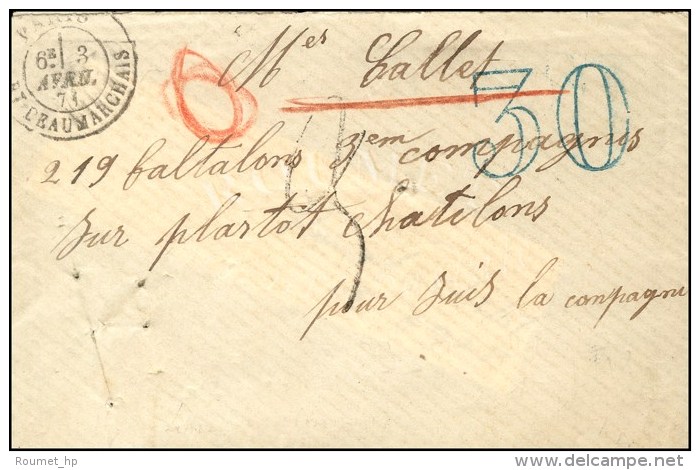 PARIS
6E 3
AVRIL
71
BT BEAUMARCHAIS
Mer Lallet
30
219 baltalons 3em compagnis
sur plartot chatilons
pour suis la conpagni
Roumet_hp
delcampe.net